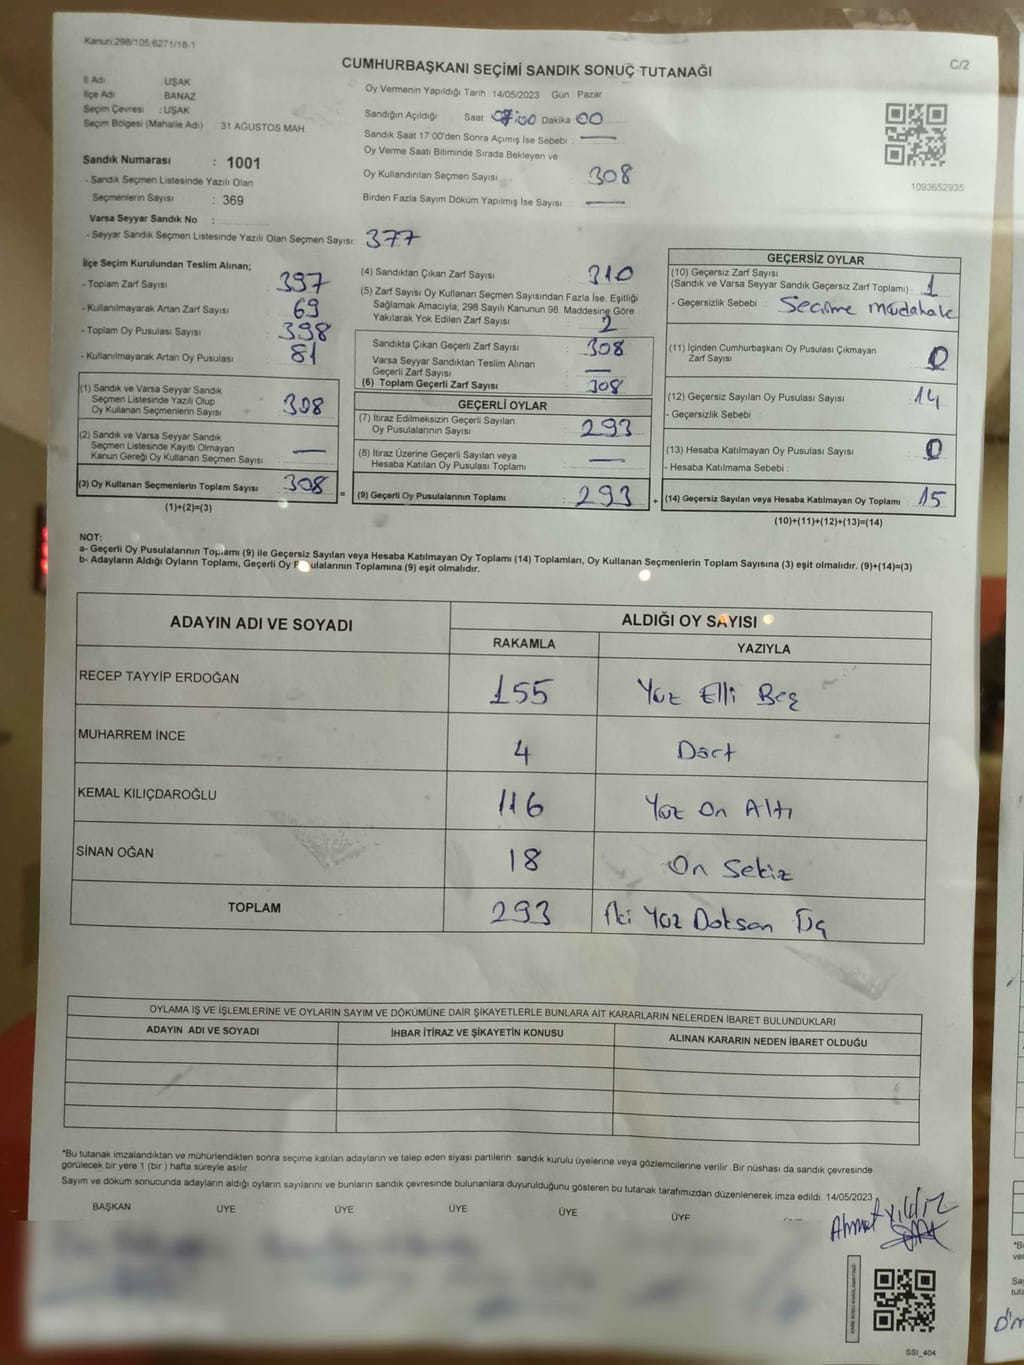 Kanun:298/105;6271/18-1
CUMHURBAŞKANI SEÇİMİ SANDIK SONUÇ TUTANAĞI
C/2
İl Adı UŞAK
İlçe Adı BANAZ
Seçim Çevresi : UŞAK
Seçim Bölgesi (Mahalle Adı) 31 AĞUSTOS MAH
Sandık Numarası : 1001
- Sandık Seçmen Listesinde Yazılı Olan
Seçmenlerin Sayısı : 369
Varsa Seyyar Sandık No :
- Seyyar Sandık Seçmen Listesinde Yazılı Olan Seçmen Sayısı: 377
Oy Vermenin Yapıldığı Tarih : 14/05/2023 Gün : Pazar
Sandığın Açıldığı Saat Dakika 00
Sandık Saat 17:00'den Sonra Açımış İse Sebebi : —
Oy Verme Saati Bitiminde Sırada Bekleyen ve
Oy Kullandırılan Seçmen Sayısı 308
Birden Fazla Sayım Döküm Yapılmış İse Sayısı —
1093652935
İlçe Seçim Kurulundan Teslim Alınan;
- Toplam Zarf Sayısı : 397
- Kullanılmayarak Artan Zarf Sayısı : 69
- Toplam Oy Pusulası Sayısı : 398
- Kullanılmayarak Artan Oy Pusulası : 81
(1) Sandık ve Varsa Seyyar Sandık
Seçmen Listesinde Yazılı Olup
Oy Kullanan Seçmenlerin Sayısı : 308
(2) Sandık ve Varsa Seyyar Sandık
Seçmen Listesinde Kayıtlı Olmayan
Kanun Gereği Oy Kullanan Seçmen Sayısı : —
(3) Oy Kullanan Seçmenlerin Toplam Sayısı : 308
(1)+(2)=(3)
=
(4) Sandıktan Çıkan Zarf Sayısı : 310
(5) Zarf Sayısı Oy Kullanan Seçmen Sayısından Fazla İse, Eşitliği
Sağlamak Amacıyla; 298 Sayılı Kanunun 98. Maddesine Göre
Yakılarak Yok Edilen Zarf Sayısı : 2
Sandıkta Çıkan Geçerli Zarf Sayısı : 308
Varsa Seyyar Sandıktan Teslim Alınan
Geçerli Zarf Sayısı : —
(6) Toplam Geçerli Zarf Sayısı : 308
GEÇERLİ OYLAR
(7) İtiraz Edilmeksizin Geçerli Sayılan
Oy Pusulalarının Sayısı : 293
(8) İtiraz Üzerine Geçerli Sayılan veya
Hesaba Katılan Oy Pusulası Toplamı : —
(9) Geçerli Oy Pusulalarının Toplamı : 293
+
GEÇERSİZ OYLAR
(10) Geçersiz Zarf Sayısı
(Sandık ve Varsa Seyyar Sandık Geçersiz Zarf Toplamı) : 1
- Geçersizlik Sebebi : Secime müdahale
(11) İçinden Cumhurbaşkanı Oy Pusulası Çıkmayan
Zarf Sayısı : 0
(12) Geçersiz Sayılan Oy Pusulası Sayısı : 14
- Geçersizlik Sebebi :
(13) Hesaba Katılmayan Oy Pusulası Sayısı : 0
- Hesaba Katılmama Sebebi :
(14) Geçersiz Sayılan veya Hesaba Katılmayan Oy Toplamı : 15
(10)+(11)+(12)+(13)=(14)
NOT:
a- Geçerli Oy Pusulalarının Toplamı (9) ile Geçersiz Sayılan veya Hesaba Katılmayan Oy Toplamı (14) Toplamları, Oy Kullanan Seçmenlerin Toplam Sayısına (3) eşit olmalıdır. (9)+(14)=(3)
b- Adayların Aldığı Oyların Toplamı, Geçerli Oy Pusulalarının Toplamına (9) eşit olmalıdır.
ADAYIN ADI VE SOYADI
ALDIĞI OY SAYISI
RAKAMLA YAZIYLA
RECEP TAYYİP ERDOĞAN 155 Yüz Elli Beş
MUHARREM İNCE 4 Dört
KEMAL KILIÇDAROĞLU 116 Yüz On Altı
SİNAN OĞAN 18 On Sekiz
TOPLAM 293 İki Yüz Doksan Üç
OYLAMA İŞ VE İŞLEMLERİNE VE OYLARIN SAYIM VE DÖKÜMÜNE DAİR ŞİKAYETLERLE BUNLARA AİT KARARLARIN NELERDEN İBARET BULUNDUKLARI
ADAYIN ADI VE SOYADI İHBAR İTİRAZ VE ŞİKAYETİN KONUSU ALINAN KARARIN NEDEN İBARET OLDUĞU
*Bu tutanak imzalandıktan ve mühürlendikten sonra seçime katılan adayların ve talep eden siyasi partilerin sandık kurulu üyelerine veya gözlemcilerine verilir. Bir nüshası da sandık çevresinde
görülecek bir yere 1 (bir ) hafta süreyle asılır.
Sayım ve döküm sonucunda adayların aldığı oyların sayılarını ve bunların sandık çevresinde bulunanlara duyurulduğunu gösteren bu tutanak tarafımızdan düzenlenerek imza edildi. 14/05/2023
BAŞKAN ÜYE ÜYE ÜYE ÜYE ÜYE
Ahmet Yıldız
SSI_404